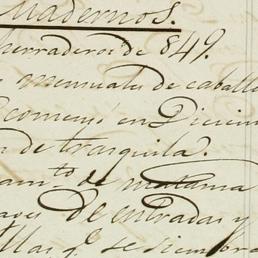 Cuadernos.
herraderos de 849.
mensuales de caball
comensó en Diciem
de trasquila.
am.to de matama
de entradas y
llas q.e se diembra